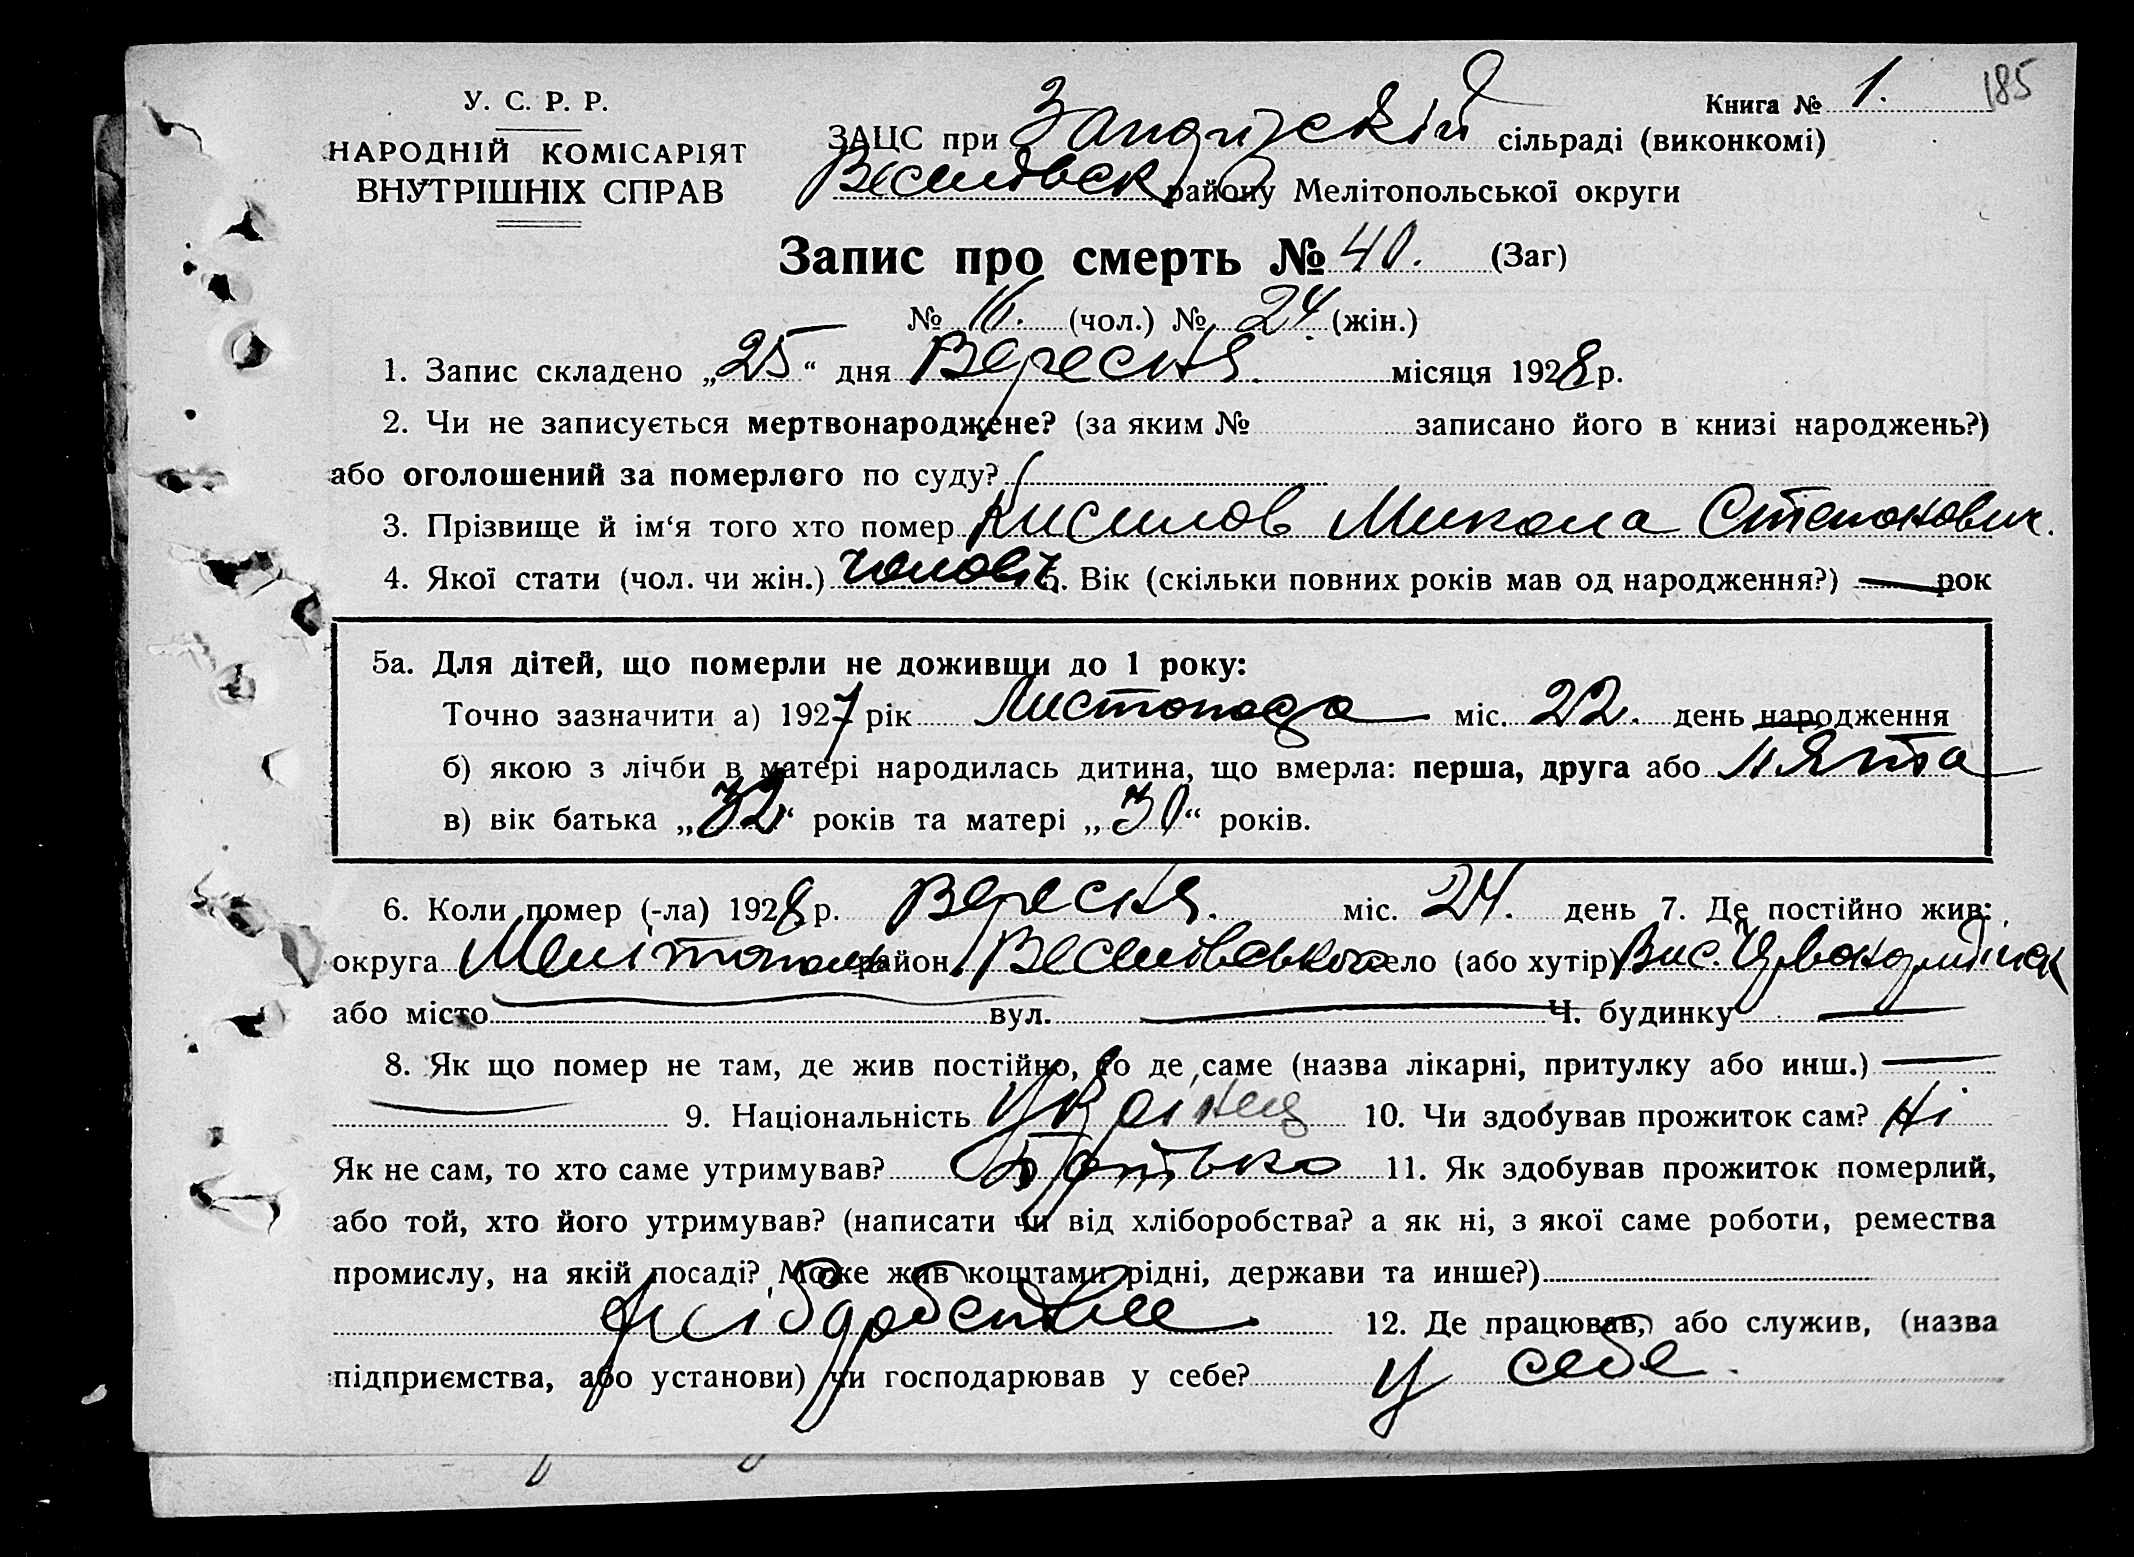 185
У. С. Р. Р.
Книга № 1.
НАРОДНІЙ КОМІСАРІЯТ
ВНУТРІШНІХ СПРАВ
ЗАЦС при сільраді (виконкомі)
району Мелітопольської округи
Запис про смерть № 40. (Заг)
№ 16. (чол.) № 24 (жін.)
1. Запис складено „25“ дня Вересня. місяця 1928 р.
2. Чи не записується мертвонароджене? (за яким № записано його в книзі народжень?)
або оголошений за померлого по суду?
3. Прізвище й ім‘я того хто помер Кисилов Микола Степанович.
4. Якої стати (чол. чи жін.) чоловіч 5. Вік (скільки повних років мав од народження?) — рок
5а. Для дітей, що померли не доживши до 1 року:
Точно зазначити а) 1927 рік Листопада міс. 22. день народження
б) якою з лічби в матері народилась дитина, що вмерла: перша, друга або пята
в) вік батька „32“ років та матері „30“ років.
6. Коли помер (-ла) 1928 р. Вересня. міс. 24. день 7. Де постійно жив:
округа Мелітополь район Веселовського село (або хутір) Вис.
або місто — вул. — Ч. будинку —
8. Як що помер не там, де жив постійно, то де саме (назва лікарні, притулку або инш.) —
— 9. Національність Украінец 10. Чи здобував прожиток сам? Ні
Як не сам, то хто саме утримував? Батько 11. Як здобував прожиток померлий,
або той, хто його утримував? (написати чи від хліборобства? а як ні, з якої саме роботи, ремества
промислу, на якій посаді? Може жив коштами рідні, держави та инше?)
12. Де працював, або служив, (назва
підприємства, або установи) чи господарював у себе? у себе.